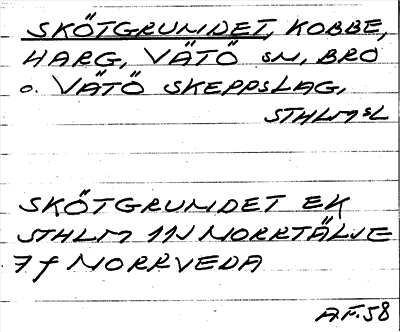 SKÖTGRUNDET, KOBBE,
HARG, VÄTÖ SN, BRO
o. VÄTÖ SKEPPSLAG,
STHLMSL
SKÖTGRUNDET EK
STHLM 11J NORRTÄLJE
7 f NORRVEDA
A.F.58